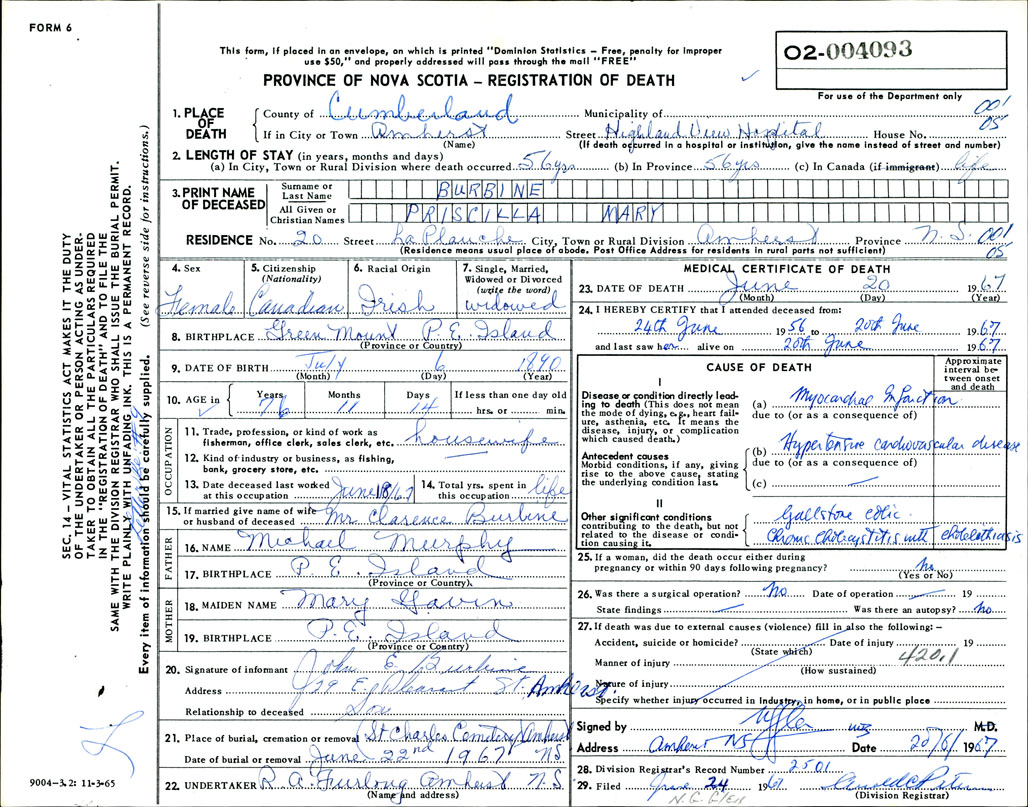 FORM 6
This form, if placed in an envelope, on which is printed "Dominion Statistics – Free, penalty for improper
use $50," and properly addressed will pass through the mail "FREE"
PROVINCE OF NOVA SCOTIA – REGISTRATION OF DEATH
02-004093
For use of the Department only
1. PLACE OF DEATH
County of Cumberland Municipality of 001
If in City or Town Amherst Street Highland View Hospital House No. 05
(Name) (If death occurred in a hospital or institution, give the name instead of street and number)
2. LENGTH OF STAY (in years, months and days)
(a) In City, Town or Rural Division where death occurred 56 yrs (b) In Province 56 yrs (c) In Canada (if immigrant) life
3. PRINT NAME OF DECEASED
Surname or Last Name BURBINE
All Given or Christian Names PRISCILLA MARY
RESIDENCE No. 20 Street La Planche City, Town or Rural Division Amherst Province N.S. 001
(Residence means usual place of abode. Post Office Address for residents in rural parts not sufficient) 05
4. Sex Female
5. Citizenship (Nationality) Canadian
6. Racial Origin Irish
7. Single, Married, Widowed or Divorced (write the word) widowed
8. BIRTHPLACE Green Mount P.E. Island
(Province or Country)
9. DATE OF BIRTH July 6 1890
(Month) (Day) (Year)
10. AGE in Years 76 Months 11 Days 14 If less than one day old
hrs. or min.
OCCUPATION
11. Trade, profession, or kind of work as
fisherman, office clerk, sales clerk, etc. housewife
12. Kind of industry or business, as fishing,
bank, grocery store, etc.
13. Date deceased last worked
at this occupation June 18/67
14. Total yrs. spent in
this occupation life
15. If married give name of wife
or husband of deceased Mr. Clarence Burbine
FATHER
16. NAME Michael Murphy
17. BIRTHPLACE P.E. Island
(Province or Country)
MOTHER
18. MAIDEN NAME Mary Gavin
19. BIRTHPLACE P.E. Island
(Province or Country)
20. Signature of informant John E. Burbine
Address 29 E. Pleasant St. Amherst
Relationship to deceased Son
21. Place of burial, cremation or removal St Charles Cemetery Amherst
Date of burial or removal June 22nd 1967 NS
22. UNDERTAKER R.A. Furlong Amherst N S
(Name and address)
MEDICAL CERTIFICATE OF DEATH
23. DATE OF DEATH June 20 1967
(Month) (Day) (Year)
24. I HEREBY CERTIFY that I attended deceased from:
24th June 1956 to 20th June 1967
and last saw her alive on 20th June 1967
CAUSE OF DEATH
Approximate interval between onset and death
I
Disease or condition directly leading to death (This does not mean the mode of dying, e.g., heart failure, asthenia, etc. It means the disease, injury, or complication which caused death.)
(a) Myocardial Infarction
due to (or as a consequence of)
Antecedent causes
Morbid conditions, if any, giving rise to the above cause, stating the underlying condition last.
(b) Hypertensive cardiovascular disease
due to (or as a consequence of)
(c) —
II
Other significant conditions
contributing to the death, but not related to the disease or condition causing it.
Gallstone colic.
Chronic Cholecystitis with cholelithiasis
25. If a woman, did the death occur either during
pregnancy or within 90 days following pregnancy? No
(Yes or No)
26. Was there a surgical operation? No Date of operation — 19
State findings — Was there an autopsy? No
27. If death was due to external causes (violence) fill in also the following: –
Accident, suicide or homicide? Date of injury 19
(State which) 420.1
Manner of injury
(How sustained)
Nature of injury
Specify whether injury occurred in Industry, in home, or in public place
Signed by M.D.
Address Amherst NS Date 20/6/1967
28. Division Registrar's Record Number 2501
29. Filed June 24 1967
(Division Registrar)
SEC. 14 – VITAL STATISTICS ACT MAKES IT THE DUTY
OF THE UNDERTAKER OR PERSON ACTING AS UNDER-
TAKER TO OBTAIN ALL THE PARTICULARS REQUIRED
IN THE "REGISTRATION OF DEATH" AND TO FILE THE
SAME WITH THE DIVISION REGISTRAR WHO SHALL ISSUE THE BURIAL PERMIT.
WRITE PLAINLY WITH UNFADING INK. THIS IS A PERMANENT RECORD.
Every item of information should be carefully supplied. (See reverse side for instructions.)
9004-3.2: 11-3-65